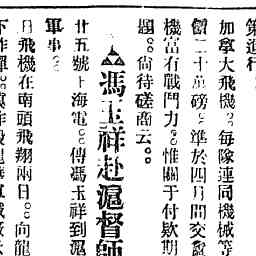 第進行。
加拿大飛機。每隊連同機械等
值二十萬磅。準於四月間交
機富有戰鬥力。惟關于付欵期
題。尚待磋商云。
▲馮玉祥赴滬督師
廿五號上海電。傳馮玉祥到滬
軍事。
日飛機在南頭飛翔兩日。向龍
下炸彈。